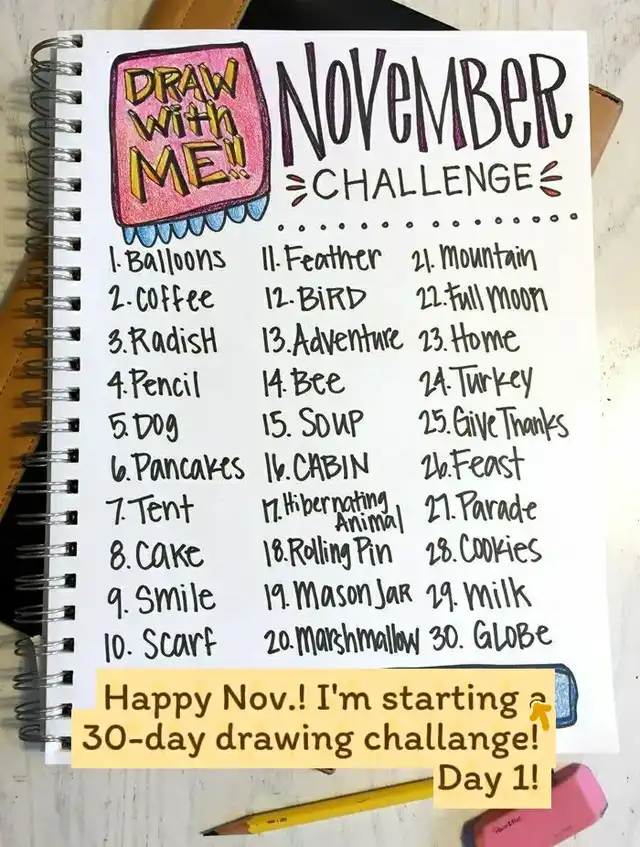 DRAW
with
ME!!
NOVEMBER
CHALLENGE
1. Balloons
2. Coffee
3. Radish
4. Pencil
5. Dog
6. Pancakes
7. Tent
8. Cake
9. Smile
10. Scarf
11. Feather
12. BiRD
13. Adventure
14. Bee
15. Soup
16. CABIN
17. Hibernating
Animal
18. Rolling Pin
19. Mason Jar
20. Marshmallow
21. Mountain
22. Full Moon
23. Home
24. Turkey
25. Give Thanks
26. Feast
27. Parade
28. Cookies
29. Milk
30. GLOBe
Happy Nov.! I'm starting a
30-day drawing challange!
Day 1!